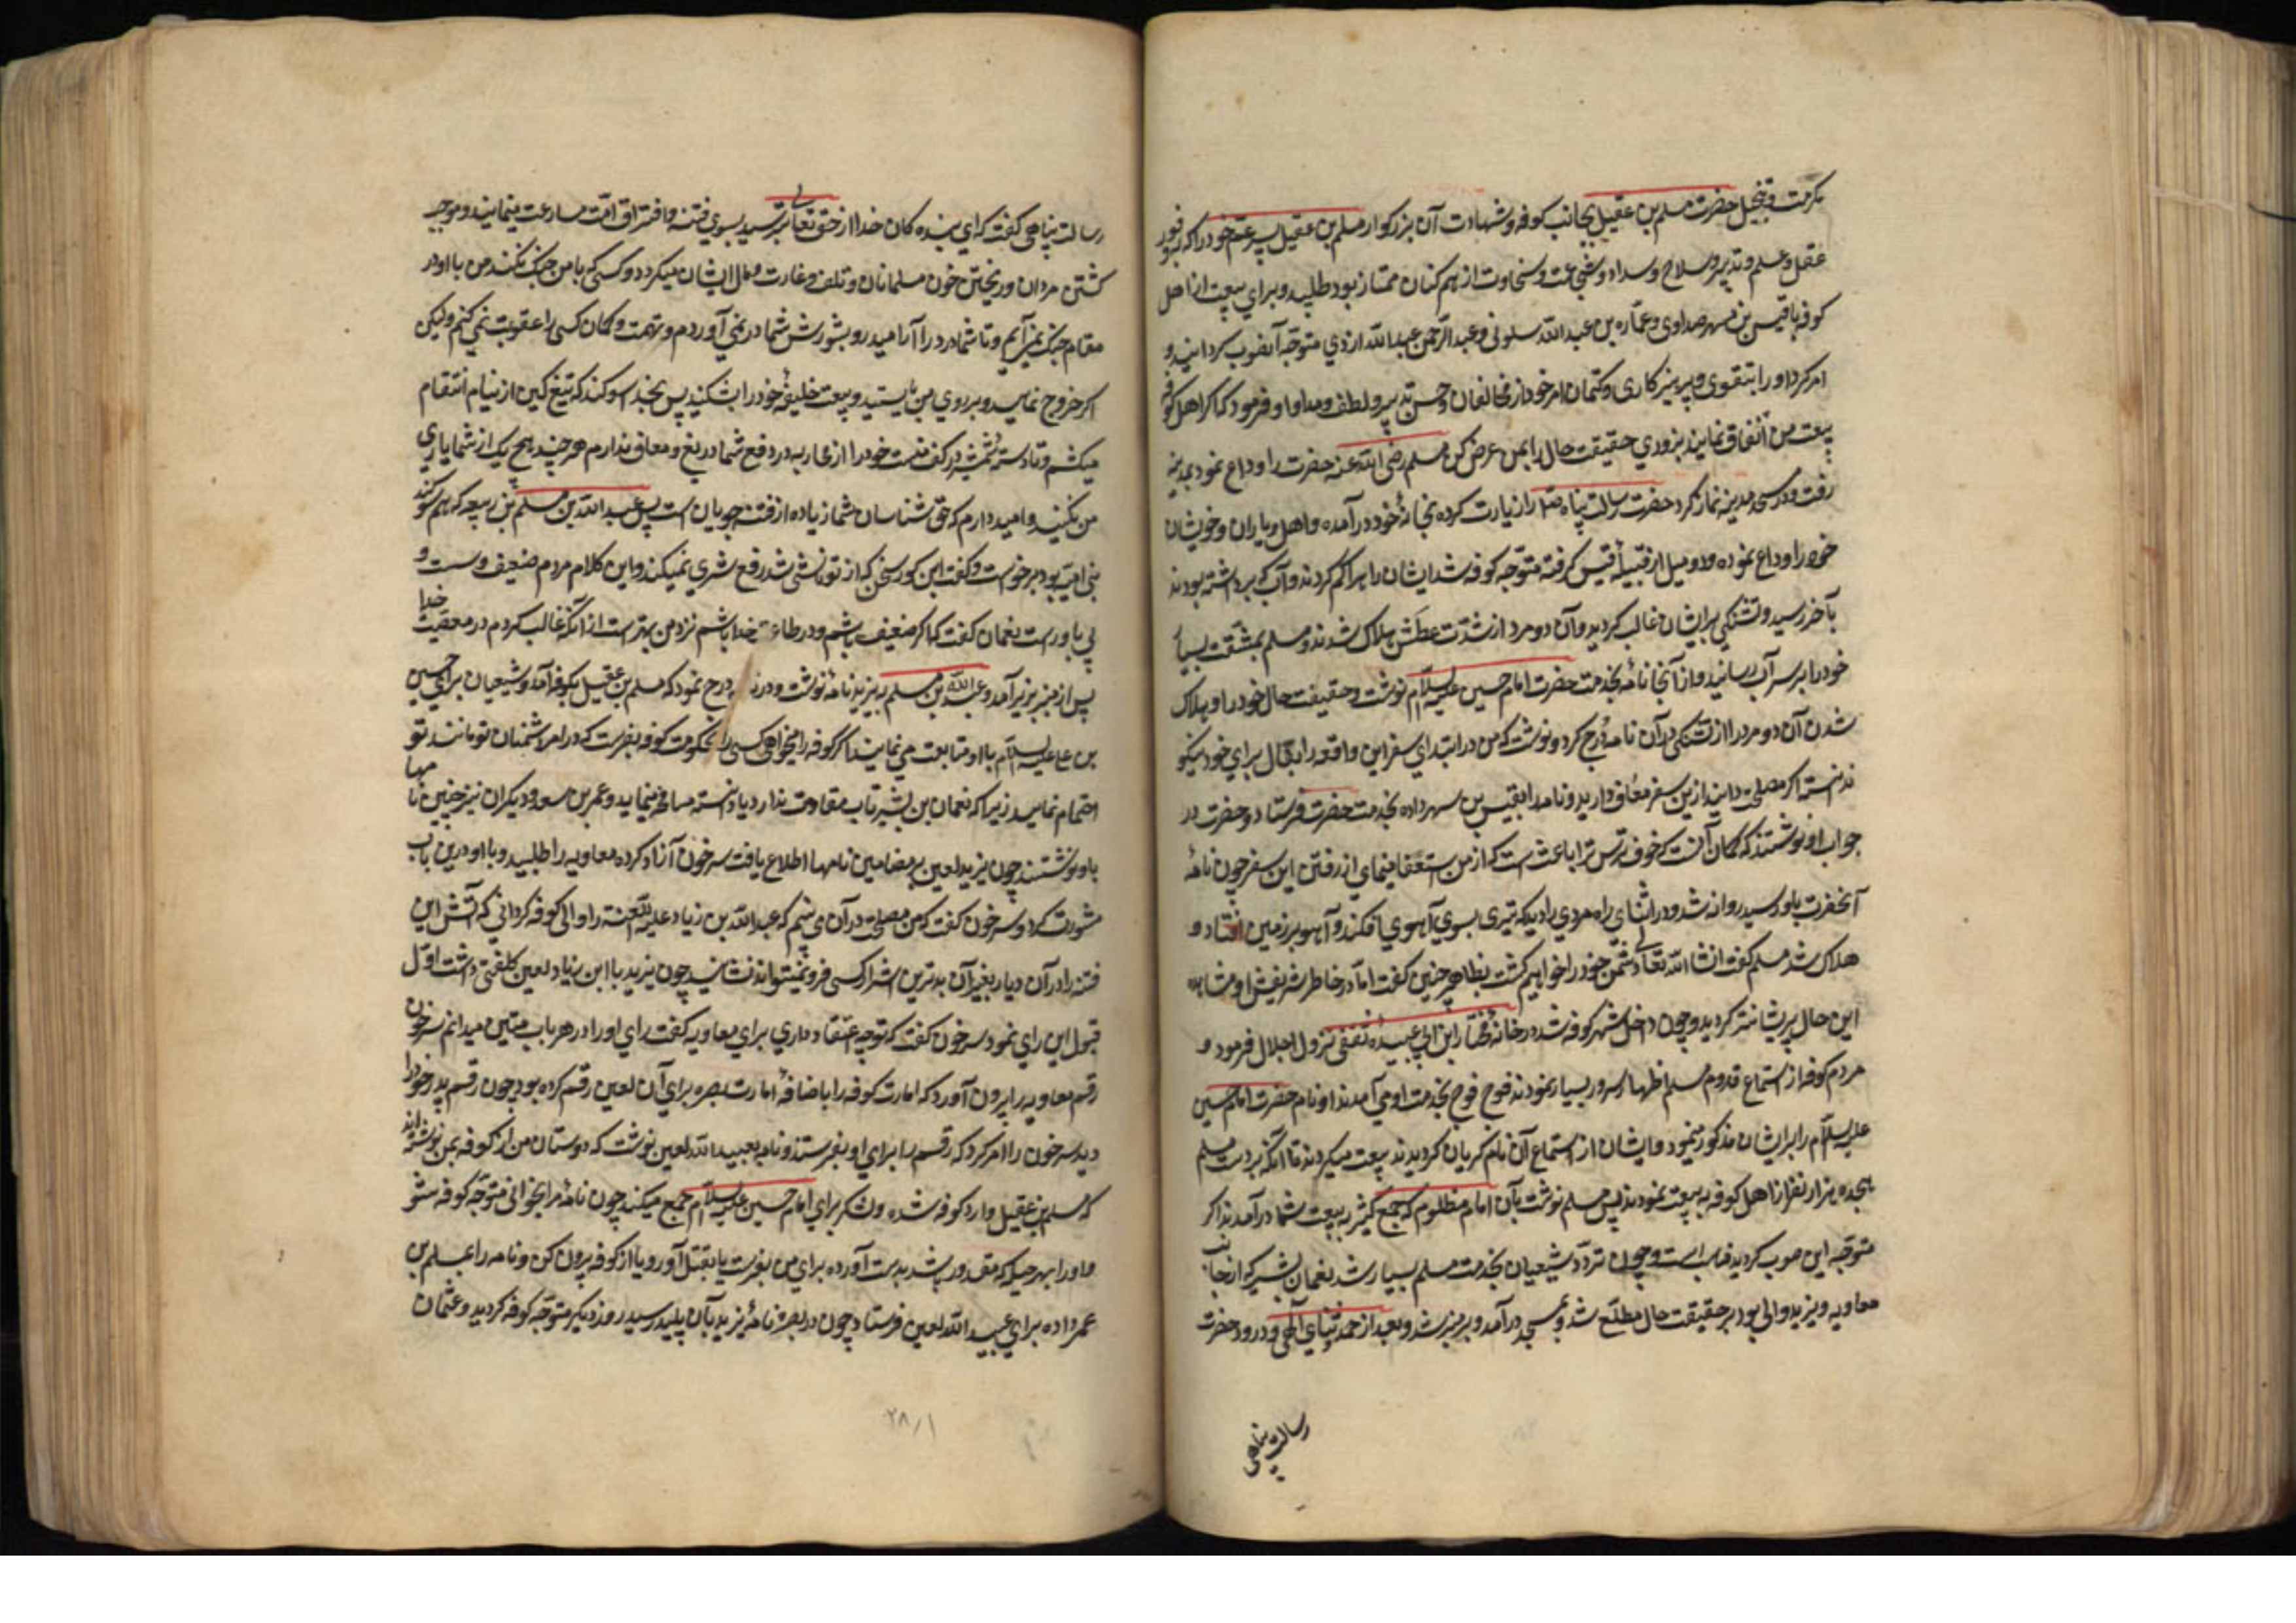 حضرت مسلم بن عقیل بجانب کوفه و شهادت آن بزرکوار مسلم بن عقیل پسر عم خود را که بوفور
عقل و علم و تدبیر و صلاح و سداد و شجاعت و سخاوت از همکنان ممتاز بود طلبید و برای بیعت از اهل
کوفه با قیس بن مسهر صیداوی و عماره بن عبدالله سلولی و عبدالرحمن عبدالله ازدی متوجه آنصوب کردانید و
امر کرد او را بتقوی و پرهیزکاری و کتمان امر خود از مخالفان و حسن تدبیر و لطف و مدارا و فرمود که اکر اهل کوفه
بیعت من اتفاق نمایند بزودی حقیقت حال را بمن عرض کن مسلم رضی الله عنه حضرت را وداع نمود بمدینه
رفت و در مسجد مدینه نماز کرد حضرت رسالت پناه صلا را زیارت کرده بخانهٔ خود درآمده و اهل و یاران و خویشان
خود را وداع نموده و دو دلیل از قبیلهٔ قیس کرفته متوجه کوفه شد ایشان راه را کم کردند و آب که برداشته بودند
بآخر رسید و تشنکی بر ایشان غالب کردید و آن دو مرد از شدت عطش هلاک شدند و مسلم بمشقت بسیار
خود را بر سر آب رسانید و از آنجا نامهٔ بخدمت حضرت امام حسین علیه السلام نوشت و حقیقت حال خود را و هلاک
شدن آن دو مرد را از تشنکی در آن نامه درج کرد و نوشت که من در ابتدای سفر این واقعه را بفال برای خود نیکو
ندانسته اکر مصلحت دانید از این سفر معاف دارید و نامه را بقیس بن مسهر داده بخدمت حضرت فرستاد و حضرت در
جواب او نوشتند که کمان آنست که خوف و ترس ترا باعث است که از من استعفا مینمای از رفتن این سفر چون نامهٔ
آنحضرت باو رسید روانه شد و در اثنای راه مردی را دید که تیری بسوی آهوی افکند و آهو بر زمین افتاد و
هلاک شد مسلم کفت انشا الله تعالی دشمن خود را خواهیم کشت بظاهر چنین کفت اما در خاطر شریفش از مشاهده
این حال پریشانتر کردید و چون داخل شهر کوفه شد در خانهٔ مختار ابن ابی عبیدهٔ ثقفی نزول اجلال فرمود و
مردم کوفه از استماع قدوم مسلم اظهار سرور بسیار نمودند فوج فوج بخدمت او می آمدند او نام حضرت امام حسین
علیه السلام را بر ایشان مذکور مینمود و ایشان از استماع آن نام کریان کردیدند بیعت میکردند تا آنکه بر دست مسلم
هجده هزار نفر از اهل کوفه به بیعت نمودند پس مسلم نوشت بآن امام مظلوم که جمع کثیر به بیعت شما درآمدند اکر
متوجه این صوب کردید مناسب است و چون تردد شیعیان بخدمت مسلم بسیار شد نعمان بشیر که از جانب
معاویه و یزید والی بود بر حقیقت حال مطلع شد و بمسجد درآمد و بر منبر شد و بعد از حمد و ثنای الهی و درود حضرت
رسالت پناهی
رسالت پناهی کفت که ای بنده کان خدا از حق تعالی بترسید بسوی فتنه و افتراق امت مسارعت منمایند و موجب
کشتن مردان و ریختن خون مسلمانان و تلف و غارت و مال ایشان میکردد و کسی که با من جنک نکند من با او در
مقام جنک نمی آیم و تا شما در درا آرامید رو بشورش شما در نمی آوردم و بتهمت و کمان کسی را عقوبت نمی کنم ولیکن
اکر خروج نمایید و بر روی من بایستید و بیعت خلیفهٔ خود را بشکنید پس بخدا سوکند که تیغ کین از نیام انتقام
میکشم و تا دسته شمشیر در کف منست خود را از محاربه در دفع شما دریغ و معاف ندارم هر چند هیچ یک از شما یاری
من نکنید و امید دارم که حق شناسان شما زیاده از فتنه جویان است پس عبدالله بن مسلم بن ربیعه که هم سوکند
بنی امیه بود برخواست و کفت این کور سخن که از تو ناشی شد رفع شری نمیکند و این کلام مردم ضعیف و سست و
بی یاور است نعمان کفت که اکر ضعیف باشم و در طاعت خدا باشم نزد من بهتر است از آنکه غالب کردم در معصیت خدا
پس از منبر بزیر آمد و عبدالله بن مسلم به یزید نامهٔ نوشت و در نامه درج نمود که مسلم بن عقیل بکوفه آمد و شیعیان برای حسین
بن علی علیه السلام با او متابعت می نمایند اکر کوفه را میخواهی کسی را بحکومت کوفه بفرست که در امر دشمنان تو مانند تو
اهتمام نماید زیرا که نعمان بن بشیر تاب مقاومت ندارد یا دانسته مساهله مینماید و عمر بن سعد و دیکران نیز چنین نامها
باو نوشتند چون یزید لعین بر مضامین نامها اطلاع یافت سرخون آزاد کرده معاویه را طلبید و با او درین باب
مشورت کرد و سرخون کفت که من مصلحت در آن می بینم که عبدالله بن زیاد علیه اللعنة را والی کوفه کردانی که آتش این
فتنه را در آن دیار بغیر آن بدترین اشرار کسی فرو نمیتواند نشانید چون یزید با ابن زیاد لعین کلفتی داشت اول
قبول این رای ننمود سرخون کفت که توجه اعتقاد داری برای معاویه کفت رای او را در هر باب متین میدانم سرخون
رقم معاویه را بیرون آورد که امارت کوفه را باضافهٔ امارت بصره برای آن لعین رقم کرده بود چون رقم پدر خود را
دید سرخون را امر کرد که رقم را برای او بفرستند و نامه بعبیدالله لعین نوشت که دوستان من از کوفه بمن نوشته اند
که مسلم بن عقیل وارد کوفه شده و لشکر برای امام حسین علیه السلام جمع میکند چون نامهٔ مرا بخوانی متوجه کوفه شو
و او را بهر حیله که مقدور باشد بدست آورده برای من بفرست یا بقتل آور و یا از کوفه بیرون کن و نامه را بمسلم بن
عمر داده برای عبیدالله لعین فرستاد چون در بصره نامهٔ یزید بآن پلید رسید روز دیکر متوجه کوفه کردید و عثمان
۲۸/۱